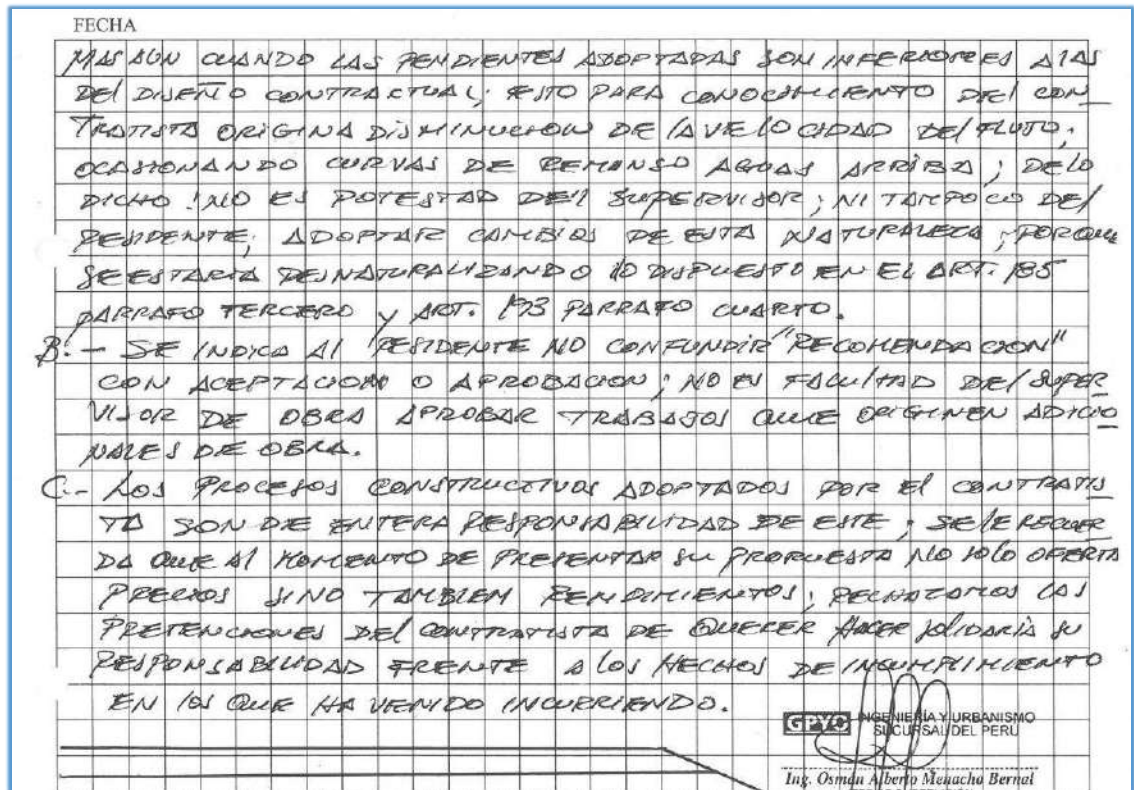 FECHA
MAS AUN CUANDO LAS PENDIENTES ADOPTADAS SON INFERIORES A LAS
DEL DISEÑO CONTRACTUAL; ESTO PARA CONOCIMIENTO DEL CON_
TRATISTA ORIGINA DISMINUCION DE LA VELOCIDAD DEL FLUJO,
OCASIONANDO CURVAS DE REMANSO AGUAS ARRIBA; DE LO
DICHO ! NO ES POTESTAD DEL SUPERVISOR; NI TAMPOCO DEL
RESIDENTE; ADOPTAR CAMBIOS DE ESTA NATURALEZA; PORQUE
SE ESTARIA DESNATURALIZANDO LO DISPUESTO EN EL ART. 185
PARRAFO TERCERO Y ART. 193 PARRAFO CUARTO.
B.- SE INDICA AL RESIDENTE NO CONFUNDIR "RECOMENDACION"
CON ACEPTACION O APROBACION; NO ES FACULTAD DEL SUPER
VISOR DE OBRA APROBAR TRABAJOS QUE ORIGINEN ADICIO
NALES DE OBRA.
C.- LOS PROCESOS CONSTRUCTIVOS ADOPTADOS POR EL CONTRATIS
TA SON DE ENTERA RESPONSABILIDAD DE ESTE; SE LE RECUER
DA QUE AL MOMENTO DE PRESENTAR SU PROPUESTA NO SOLO OFERTA
PRECIOS SINO TAMBIEN RENDIMIENTOS; RECHAZAMOS LAS
PRETENCIONES DEL CONTRATISTA DE QUERER HACER SOLIDARIA SU
RESPONSABILIDAD FRENTE A LOS HECHOS DE INCUMPLIMIENTO
EN LOS QUE HA VENIDO INCURRIENDO.
GPYO INGENIERÍA Y URBANISMO
SUCURSAL DEL PERU
Ing. Osmán Alberto Menacho Bernal